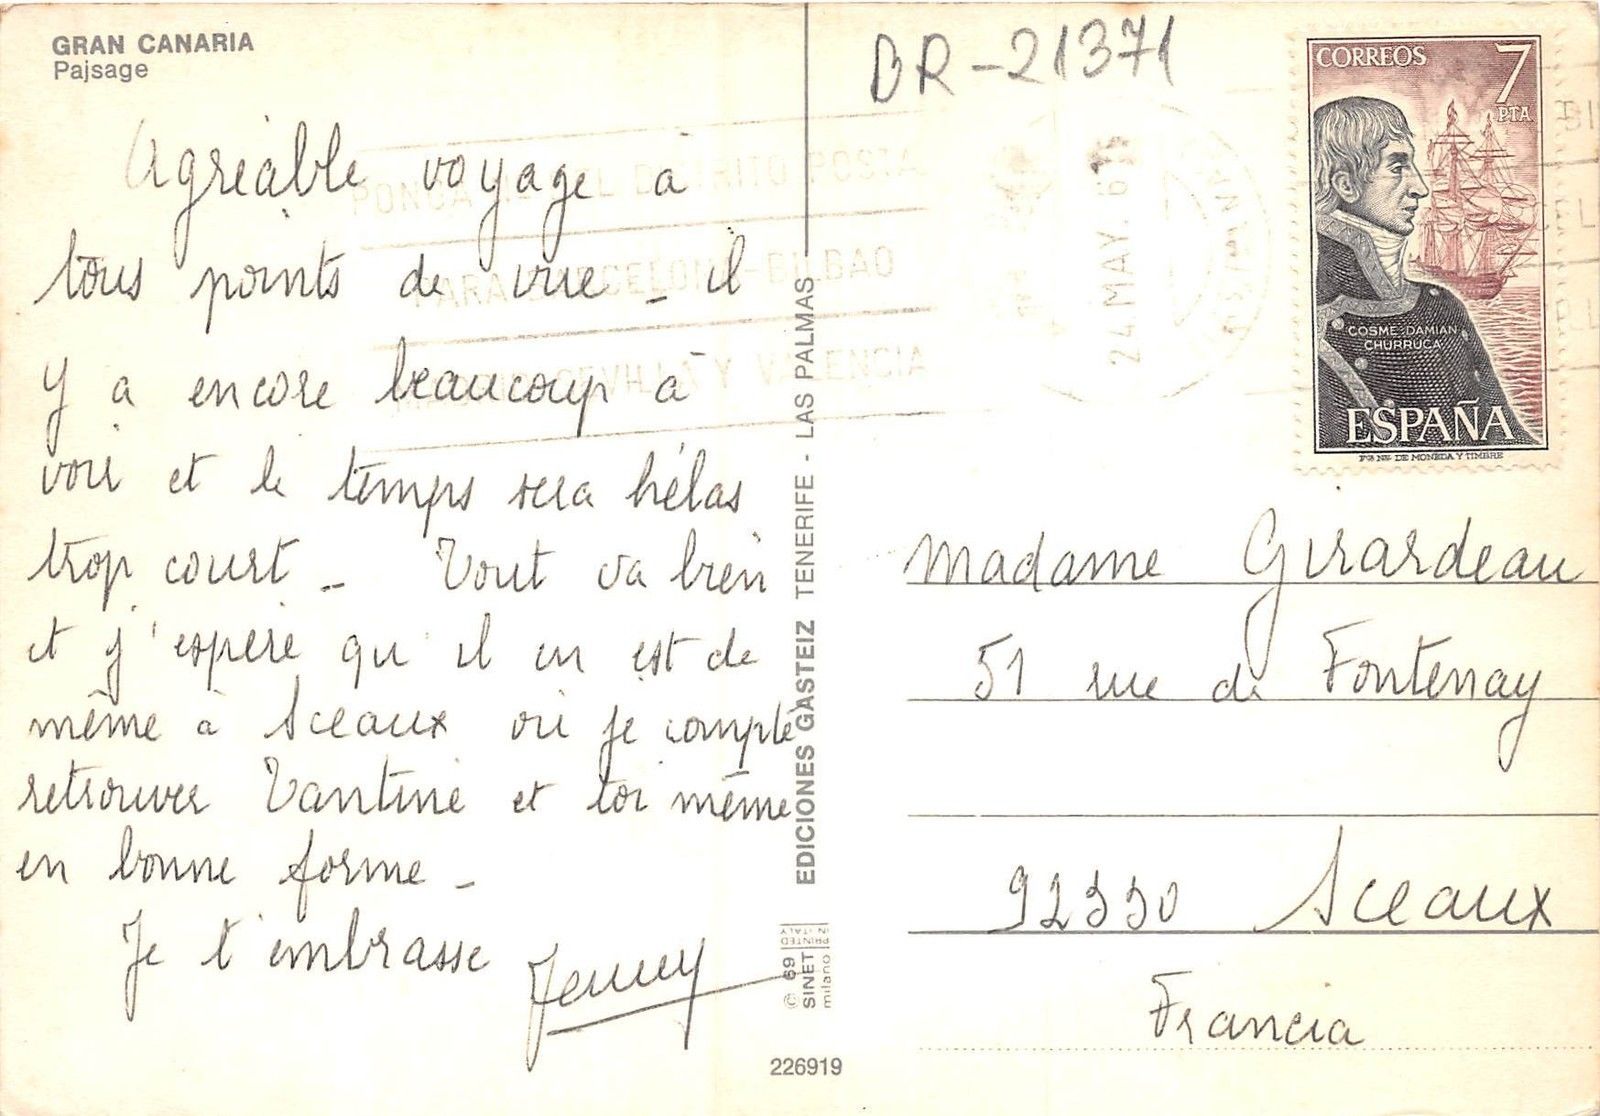 GRAN CANARIA
Pajsage
DR-21371
Agréable voyage à
tous points de vue - il
y a encore beaucoup à
voir et le temps sera hélas
trop court - Tout va bien
et j'espère qu'il en est de
même à Sceaux où je compte
retrouver Tantine et toi même
en bonne forme -
Je t'embrasse Jenny
PONGA EL DISTRITO POSTA
PARA BARCELONA-BILBAO
SEVILLA Y VALENCIA
24.MAY.
EDICIONES GASTEIZ TENERIFE - LAS PALMAS
© 69
SINET
milano
PRINTED
IN ITALY
226919
CORREOS 7
PTA
COSME DAMIAN
CHURRUCA
ESPAÑA
DE MONEDA Y TIMBRE
Madame Girardeau
51 rue de Fontenay
92330 Sceaux
Francia